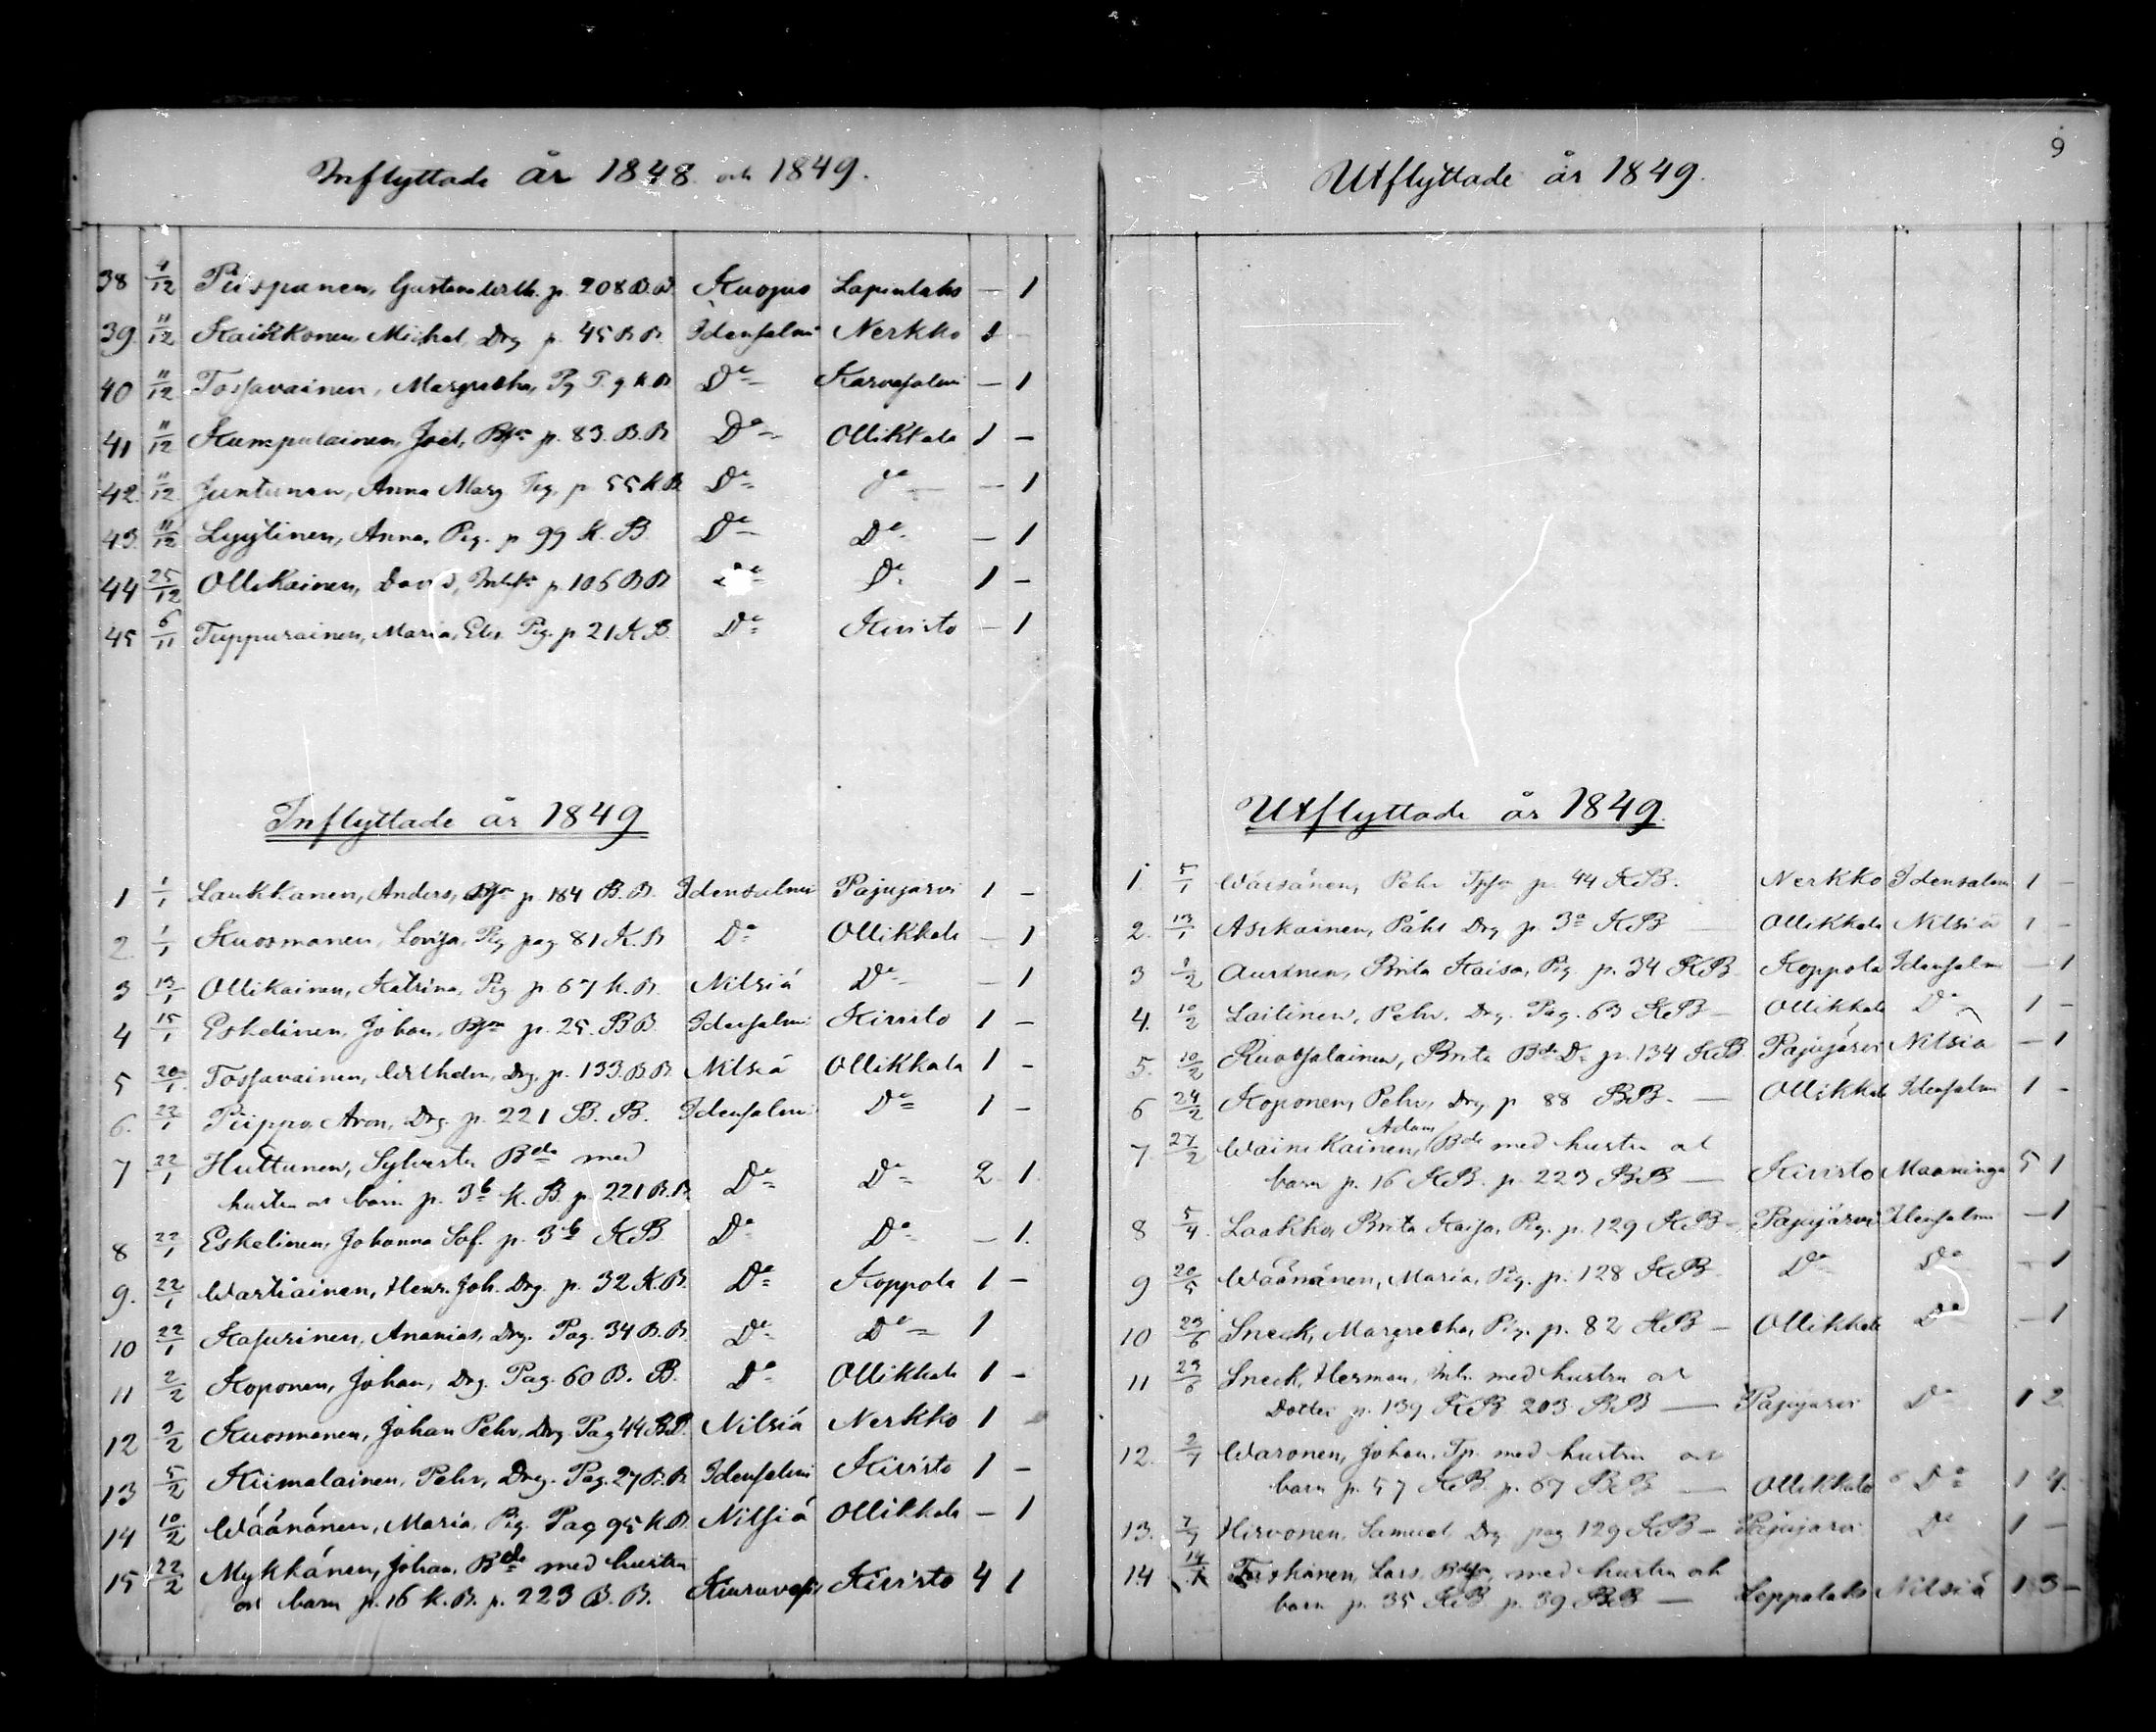 Inflyttade år 1848 och 1849.
38 4/12 Piispanen, Gustava p. 208 B.B. Kuopio Lapinlaks — 1
39. 11/12 Kaikkonen, Michel, Drg p. 45 B.B. Idensalmi Nerkko 1 —
40 11/12 Tossavainen, Margretha, Pg P. 9 K.B. Do Karvasalmi — 1
41 11/12 Kumpulainen, Joel, p. 83. B.B. Do Ollikkala 1 —
42. 11/12 Juntunen, Anna Marg Pig. p. 55 K.B. Do Do — 1
43. 11/12 Lyytinen, Anna, Pig. p 99 K. B. Do Do — 1
44 25/12 Ollikainen, David, p. 106 B.B. Do Do 1 —
45 6/11 Tuppurainen, Maria, Elis. Pig. p 21 K.B. Do Kivisto — 1
Inflyttade år 1849
1 1/1 Laukkanen, Anders, p 184 B.B. Idensalmi Pajujärvi 1 —
2. 1/1 Kuosmanen, Lovisa, Pig pag 81 K.B. Do Ollikkala — 1
3 13/1 Ollikainen, Katrina, Pig p. 67 K.B. Nilsiä Do — 1
4 15/1 Eskelinen, Johan, p. 25. B.B. Idensalmi Kivisto 1 —
5 20/1 Tossavainen, Wilhelm, Drg. p. 133. B.B. Nilsiä Ollikkala 1 —
6. 22/1 Piippo, Aron, Drg. p. 221 B. B. Idensalmi Do 1 —
7 22/1 Huttunen, Sylvester Bde med
hustru o barn p. 3b K. B. p. 221 B.B. Do Do 2. 1.
8 22/1 Eskelinen, Johanna Sof. p. 3b KB Do Do — 1.
9. 22/1 Wartiainen, Henr. Joh. Drg. p. 32 K.B. Do Koppola 1 —
10 22/1 Kasurinen, Ananias, Drg. Pag. 34 B.B. Do Do — 1
11 2/2 Koponen, Johan, Drg. Pag. 60 B. B. Do Ollikkala 1 —
12 3/2 Kuosmanen, Johan Pehr, Drg. Pag 44 B.B. Nilsiä Nerkko 1
13 5/2 Kiimalainen, Pehr, Drg. Pag. 27 B.B. Idensalmi Kivisto 1 —
14 10/2 Wäänänen, Maria, Pig. Pag 95 K.B. Nilsiä Ollikkala — 1
15 22/2 Mykkänen, Johan, Bde med hustru
och barn p. 16 K.B. p. 223 B.B. Kiuruvesi Kivisto 4 1
9
Utflyttade år 1849.
Utflyttade år 1849.
1. 5/1 Wäisänen, Pehr p. 44 KB. Nerkko Idensalmi 1 —
2. 13/1 Asikainen, Påhl Drg p. 3a KB — Ollikkala Nilsiä 1 —
3 1/2 Auvinen, Brita Kaisa, Pig p. 34 KB. Koppola Idensalmi — 1
4. 10/2 Laitinen, Pehr, Drg. Pag. 63 KB — Ollikkala Do 1 —
5. 10/2 Ruotsalainen, Brita Bde Dr p. 134 KB Pajujärvi Nilsia — 1
6 24/2 Koponen, Pehr, Drg. p 88 BB. — Ollikkala Idensalmi 1 —
7. 27/2 Wainikainen, Adam, Bde med hustru och
barn p. 16 KB. p. 223 BB — Kivisto Maaninga 5 1
8 5/4 Laakko, Brita Kaisa, Pig. p. 129 KB — Pajujärvi Idensalmi — 1
9 20/5 Wäänänen, Maria, Pig. p. 128 KB Do Do — 1
10 23/6 Sneck, Margretha, Pig. p. 82 KB — Ollikkala Do — 1
11 23/6 Sneck, Herman, Inh. med hustru och
Dotter p. 139 KB 203 BB — Pajujarvi Do 1 2
12. 2/7 Waronen, Johan, Tp. med hustru och
barn p. 57 KB. p. 67 BB — Ollikkala Do 1 4.
13. 7/7 Hirvonen, Samuel Drg pag 129 KB — Pajujarvi Do 1 —
14 Laskinen, Lars, med hustru och
barn p. 35 KB p. 39 BB — Leppälaks Nilsiä 1 3 —